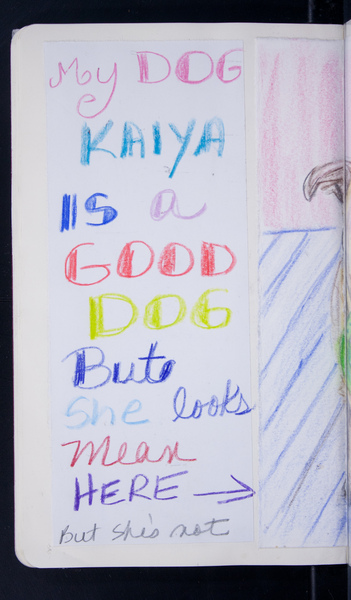 My DOG
KAIYA
IS a
GOOD
DOG
But
She looks
Mean
HERE →
But she's not